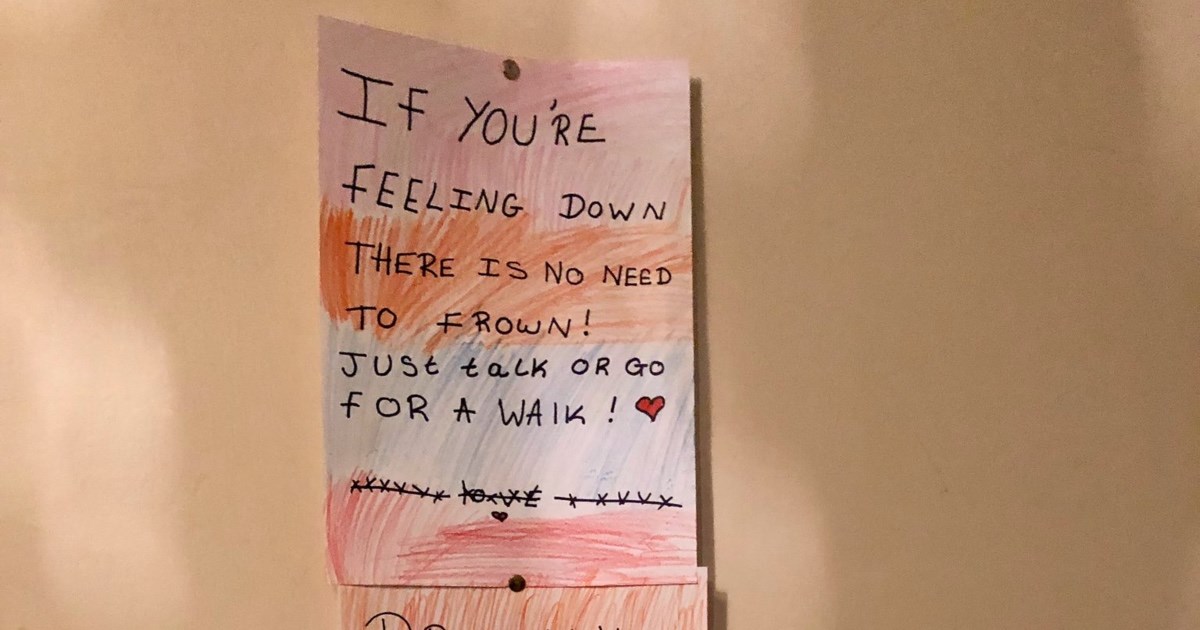 IF YOU'RE
FEELING DOWN
THERE IS NO NEED
TO FROWN!
JUSt talk OR GO
FOR A WAlK! ❤
xxxxxx loVE xxxxxx